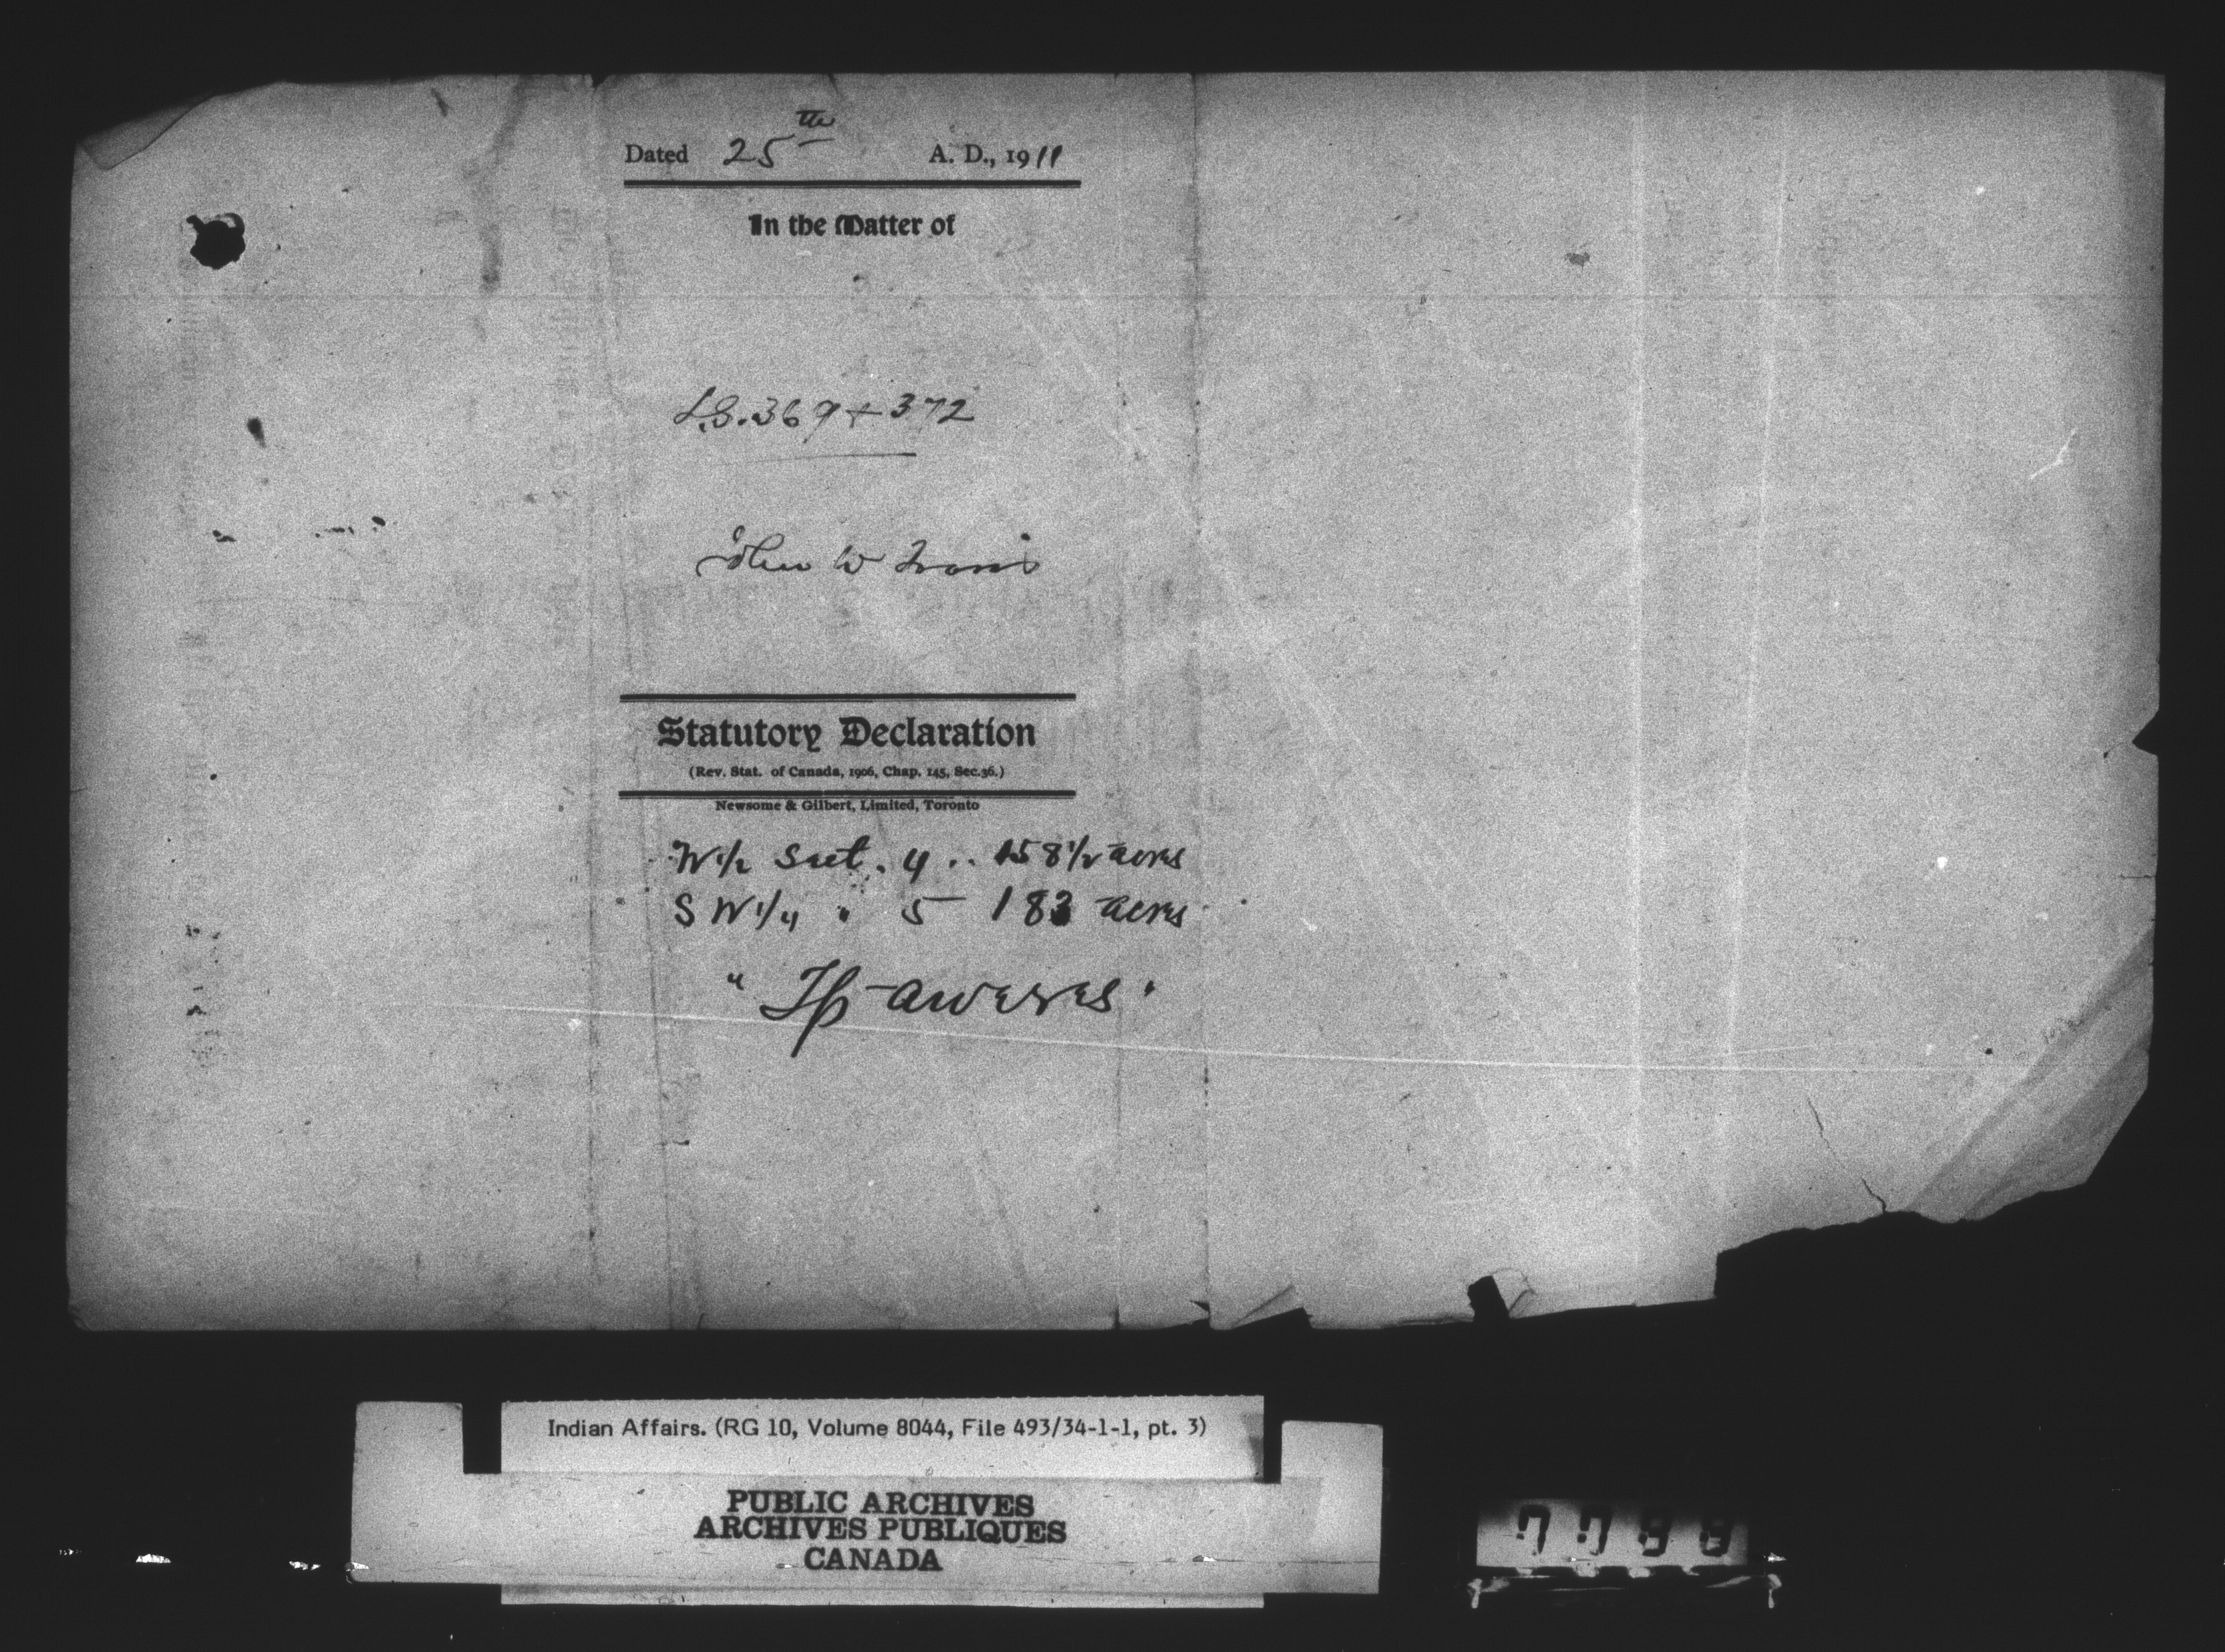 Dated 25th A. D., 1911
In the Matter of
L.S. 369 + 372
John W
Statutory Declaration
(Rev. Stat. of Canada, 1906, Chap. 145, Sec.36.)
Newsome & Gilbert, Limited, Toronto
W 1/2 Sect. 4 .. 158 1/2 acres
S W 1/4 " 5 183 acres
" Tp aweres "
Indian Affairs. (RG 10, Volume 8044, File 493/34-1-1, pt. 3)
PUBLIC ARCHIVES
ARCHIVES PUBLIQUES
CANADA